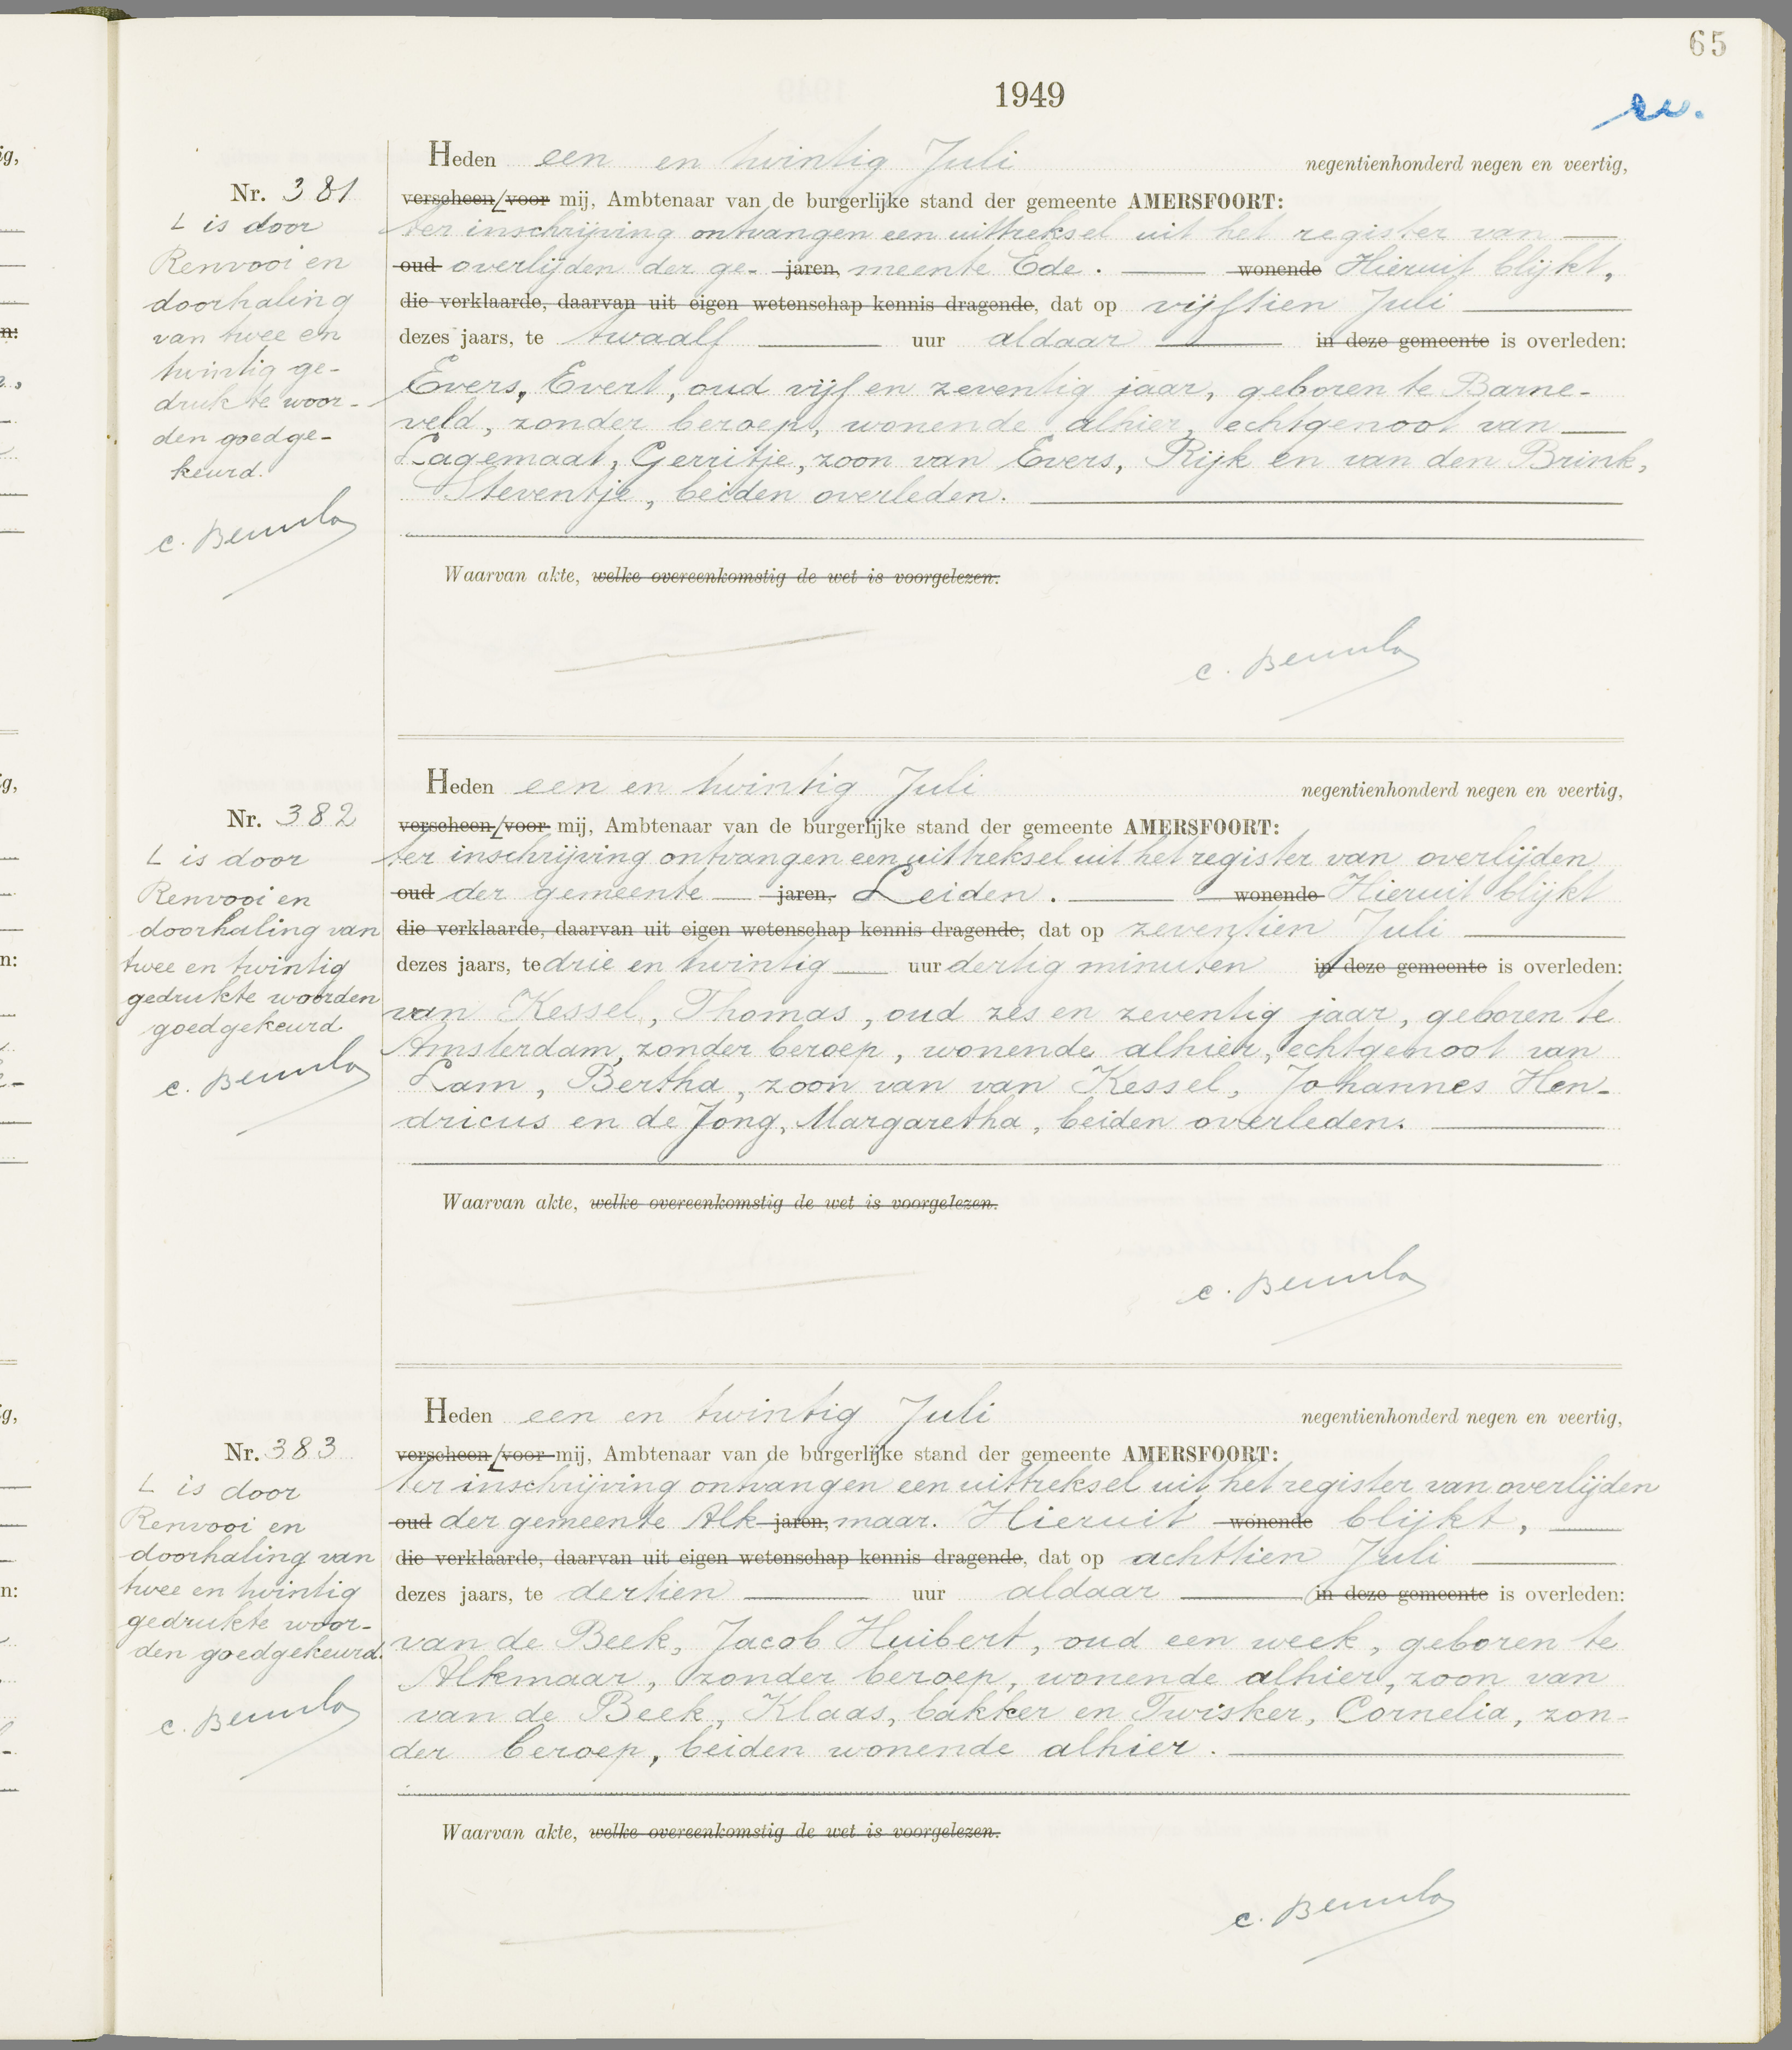 65
1949
Heden een en twintig Juli negentienhonderd negen en veertig,
Nr. 381
verscheen / voor mij, Ambtenaar van de burgerlijke stand der gemeente AMERSFOORT:
ter inschrijving ontvangen een uittreksel uit het register van
oud overlijden der ge- jaren, meente Ede. wonende Hieruit blijkt,
die verklaarde, daarvan uit eigen wetenschap kennis dragende, dat op vijftien Juli
dezes jaars, te twaalf uur aldaar in deze gemeente is overleden:
Evers, Evert, oud vijf en zeventig jaar, geboren te Barne-
veld, zonder beroep, wonende alhier, echtgenoot van
Lagemaat, Gerritje, zoon van Evers, Rijk en van den Brink,
Steventje, beiden overleden.
L is door
Renvooi en
doorhaling
van twee en
twintig ge-
drukte woor-
den goedge-
keurd.
Waarvan akte, welke overeenkomstig de wet is voorgelezen.
Heden een en twintig Juli negentienhonderd negen en veertig,
Nr. 382
verscheen / voor mij, Ambtenaar van de burgerlijke stand der gemeente AMERSFOORT:
ter inschrijving ontvangen een uittreksel uit het register van overlijden
oud der gemeente jaren, Leiden. wonende Hieruit blijkt
die verklaarde, daarvan uit eigen wetenschap kennis dragende, dat op zeventien Juli
dezes jaars, te drie en twintig uur dertig minuten in deze gemeente is overleden:
van Kessel, Thomas, oud zes en zeventig jaar, geboren te
Amsterdam, zonder beroep, wonende alhier, echtgenoot van
Lam, Bertha, zoon van van Kessel, Johannes Hen-
dricus en de Jong, Margaretha, beiden overleden.
L is door
Renvooi en
doorhaling van
twee en twintig
gedrukte woorden
goedgekeurd
Waarvan akte, welke overeenkomstig de wet is voorgelezen.
Heden een en twintig Juli negentienhonderd negen en veertig,
Nr. 383
verscheen / voor mij, Ambtenaar van de burgerlijke stand der gemeente AMERSFOORT:
ter inschrijving ontvangen een uittreksel uit het register van overlijden
oud der gemeente Alk- jaren, maar. Hieruit wonende blijkt,
die verklaarde, daarvan uit eigen wetenschap kennis dragende, dat op achttien Juli
dezes jaars, te dertien uur aldaar in deze gemeente is overleden:
van de Beek, Jacob Huibert, oud een week, geboren te
Alkmaar, zonder beroep, wonende alhier, zoon van
van de Beek, Klaas, bakker en Twisker, Cornelia, zon-
der beroep, beiden wonende alhier.
L is door
Renvooi en
doorhaling van
twee en twintig
gedrukte woor-
den goedgekeurd.
Waarvan akte, welke overeenkomstig de wet is voorgelezen.